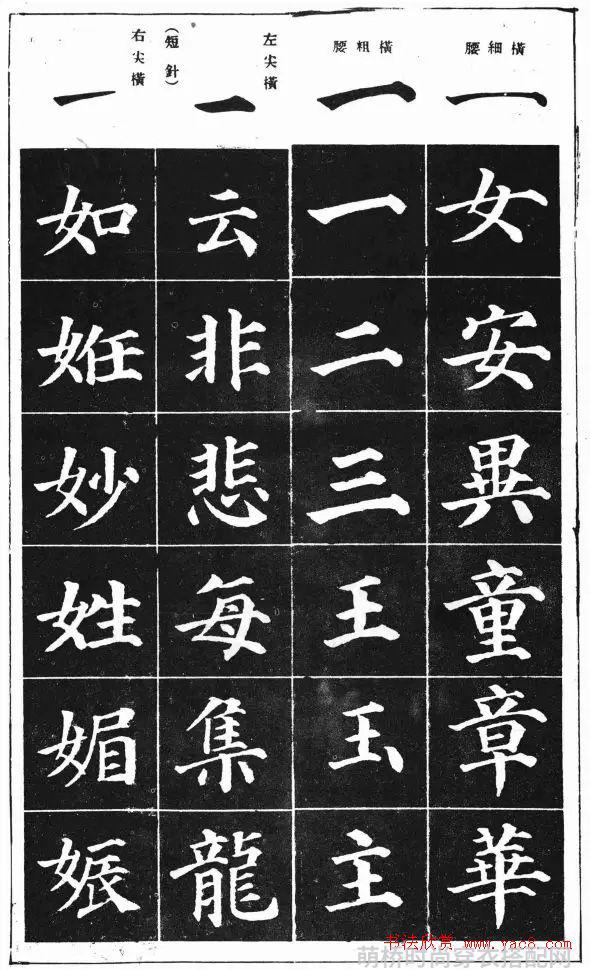 橫細腰
一
女安異童章華
橫粗腰
一
一二三王玉主
左尖橫
(短針)
一
云非悲每集龍
右尖橫
一
如姙妙姓媚娠
书法欣赏 www.yac8.com
萌桥时尚穿衣搭配网